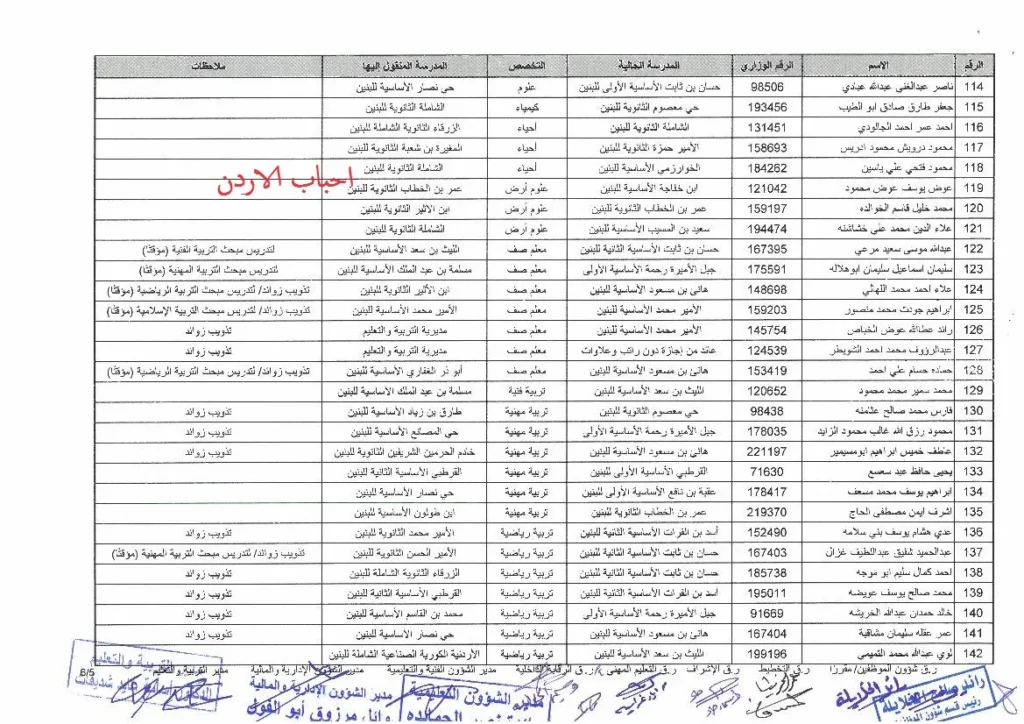 الرقم الاسم الرقم الوزاري المدرسة الحالية التخصص المدرسة المنقول إليها ملاحظات
114 ناصر عبدالغني عبدالله عبادي 98506 حسان بن ثابت الأساسية الأولى للبنين علوم حي نصار الأساسية للبنين
115 جعفر طارق صادق ابو الطيب 193456 حي معصوم الثانوية للبنين كيمياء الشاملة الثانوية للبنين
116 احمد عمر احمد الجالودي 131451 الشاملة الثانوية للبنين أحياء الزرقاء الثانوية الشاملة للبنين
117 محمود درويش محمود ادريس 158693 الأمير حمزة الثانوية للبنين أحياء المغيرة بن شعبة الثانوية للبنين
118 محمود فتحي علي ياسين 184262 الخوارزمي الأساسية للبنين أحياء الشاملة الثانوية للبنين
احباب الاردن
119 عوض يوسف عوض محمود 121042 ابن خفاجة الأساسية للبنين علوم أرض عمر بن الخطاب الثانوية للبنين
120 محمد خليل قاسم الخوالده 159197 عمر بن الخطاب الثانوية للبنين علوم أرض ابن الاثير الثانوية للبنين
121 علاء الدين محمد علي خشاشنه 194474 سعيد بن المسيب الأساسية للبنين علوم أرض الشاملة الثانوية للبنين
122 عبدالله موسى سعيد مرعي 167395 حسان بن ثابت الأساسية الثانية للبنين معلم صف الليث بن سعد الأساسية للبنين لتدريس مبحث التربية الفنية (مؤقتا)
123 سليمان اسماعيل سليمان ابوهلاله 175591 جبل الأميرة رحمة الأساسية الأولى معلم صف مسلمة بن عبد الملك الأساسية للبنين لتدريس مبحث التربية المهنية (مؤقتا)
124 علاء احمد محمد اللهالي 148698 هانئ بن مسعود الأساسية للبنين معلم صف ابن الأثير الثانوية للبنين تذويب زوائد/ لتدريس مبحث التربية الرياضية (مؤقتا)
125 ابراهيم جودت محمد منصور 159203 الأمير محمد الأساسية للبنين معلم صف الأمير محمد الأساسية للبنين تذويب زوائد/ لتدريس مبحث التربية الإسلامية (مؤقتا)
126 رائد عطاالله عوض الخباص 145754 الأمير محمد الأساسية للبنين معلم صف مديرية التربية والتعليم تذويب زوائد
127 عبدالرؤوف محمد احمد الشويطر 124539 عائد من إجازة دون راتب وعلاوات معلم صف مديرية التربية والتعليم تذويب زوائد
128 حماده حسام علي احمد 153419 هانئ بن مسعود الأساسية للبنين معلم صف أبو ذر الغفاري الأساسية للبنين تذويب زوائد/ لتدريس مبحث التربية الرياضية (مؤقتا)
129 محمد سمير محمد محمود 120652 الليث بن سعد الأساسية للبنين تربية فنية مسلمة بن عبد الملك الأساسية للبنين
130 فارس محمد صالح عثامنه 98438 حي معصوم الثانوية للبنين تربية مهنية طارق بن زياد الأساسية للبنين تذويب زوائد
131 محمود رزق الله غالب محمود الزايد 178035 جبل الأميرة رحمة الأساسية الأولى تربية مهنية حي المصانع الأساسية للبنين تذويب زوائد
132 عاطف خميس ابراهيم ابومسيمير 221197 هانئ بن مسعود الأساسية للبنين تربية مهنية خادم الحرمين الشريفين الثانوية للبنين تذويب زوائد
133 يحيى حافظ عبد سعسع 71630 القرطبي الأساسية الأولى للبنين تربية مهنية القرطبي الأساسية الثانية للبنين
134 ابراهيم يوسف محمد مسعف 178417 عقبة بن نافع الأساسية الأولى للبنين تربية مهنية حي نصار الأساسية للبنين
135 اشرف ايمن مصطفى الحاج 219370 عمر بن الخطاب الثانوية للبنين تربية مهنية ابن طولون الأساسية للبنين
136 عدي هشام يوسف بني سلامه 152490 أسد بن الفرات الأساسية الثانية للبنين تربية رياضية الأمير محمد الثانوية للبنين تذويب زوائد
137 عبدالحميد شفيق عبداللطيف غزال 167403 حسان بن ثابت الأساسية الثانية للبنين تربية رياضية الأمير الحسن الثانوية للبنين تذويب زوائد/ لتدريس مبحث التربية المهنية (مؤقتا)
138 احمد كمال سليم ابو موجه 185738 حسان بن ثابت الأساسية الثانية للبنين تربية رياضية الزرقاء الثانوية الشاملة للبنين تذويب زوائد
139 محمد صالح يوسف عويضه 195011 أسد بن الفرات الأساسية الثانية للبنين تربية رياضية القرطبي الأساسية الثانية للبنين تذويب زوائد
140 خالد حمدان عبدالله الخريشه 91669 جبل الأميرة رحمة الأساسية الأولى تربية رياضية محمد بن القاسم الأساسية للبنين تذويب زوائد
141 عمر عقله سليمان مشاقبة 167404 هانئ بن مسعود الأساسية للبنين تربية رياضية حي نصار الأساسية للبنين تذويب زوائد
142 لوي عبدالله محمد التميمي 199196 الليث بن سعد الأساسية للبنين تربية رياضية الأردنية الكورية الصناعية الشاملة للبنين
ر.ق شؤون الموظفين/ مقررا ر.ق التخطيط ر.ق الإشراف ر.ق التعليم المهني ر.ق الرقابة الداخلية مدير الشؤون الفنية والتعليمية مدير الشؤون الإدارية والمالية مدير التربية والتعليم 6/5
مدير الشؤون التعليمية
مدير الشؤون الإدارية والمالية
وائل مرزوق أبو الفول
التربية والتعليم